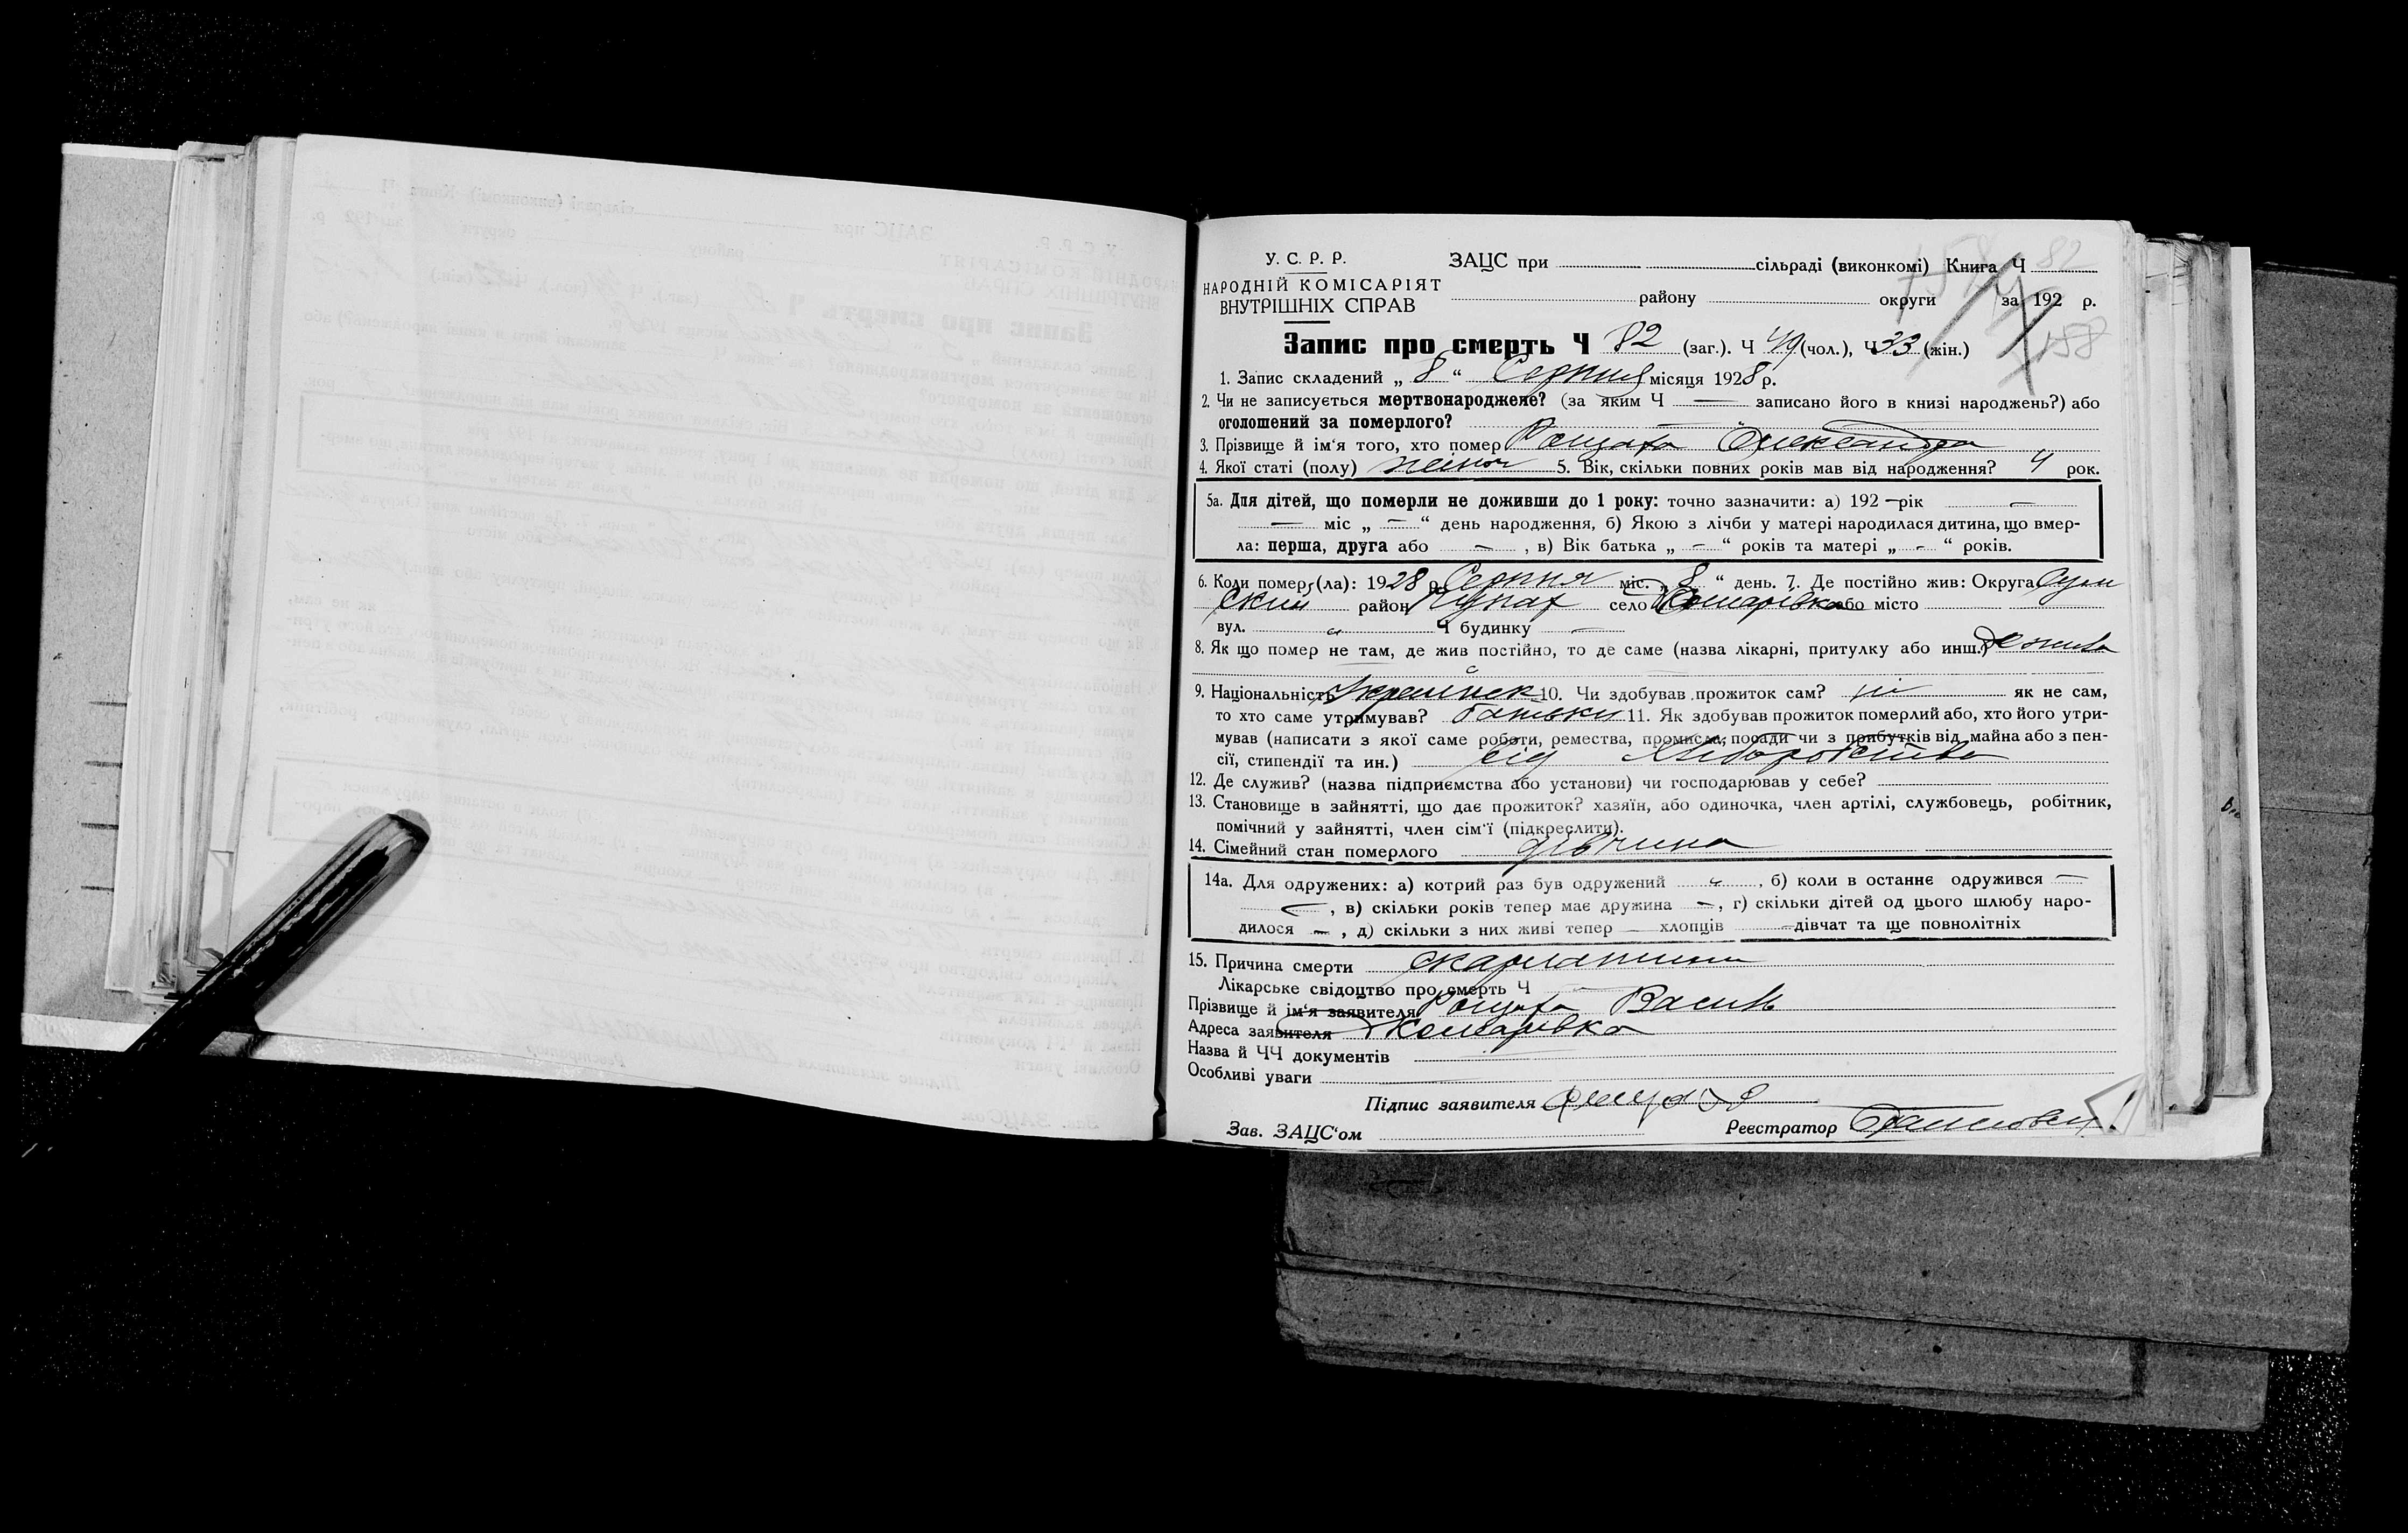 У. С. Р. Р.
НАРОДНІЙ КОМІСАРІЯТ
ВНУТРІШНІХ СПРАВ
ЗАЦС при сільраді (виконкомі) Книга Ч 82
району округи за 192 р.
158
Запис про смерть Ч 82 (заг.). Ч 49 (чол.), Ч 33 (жін.)
1. Запис складений „ 8 “ Серпня місяця 1928 р.
2. Чи не записується мертвонароджене? (за яким Ч — записано його в книзі народжень?) або
оголошений за померлого?
3. Прізвище й ім‘я того, хто помер Олександра
4. Якої статі (полу) жіноч 5. Вік, скільки повних років мав від народження? 4 рок.
5а. Для дітей, що померли не доживши до 1 року: точно зазначити: а) 192 — рік —
— міс „ — “ день народження, б) Якою з лічби у матері народилася дитина, що вмер-
ла: перша, друга або — , в) Вік батька „ — “ років та матері „ — “ років.
6. Коли помер (ла): 1928 р. Серпня міс. „ 8 “ день. 7. Де постійно жив: Округа Сум
ский район село Комарівка або місто
вул. „ Ч будинку —
8. Як що помер не там, де жив постійно, то де саме (назва лікарні, притулку або инш.)
9. Національність Українск 10. Чи здобував прожиток сам? ні як не сам,
то хто саме утримував? батьки 11. Як здобував прожиток померлий або, хто його утри-
мував (написати з якої саме роботи, ремества, промисла, посади чи з прибутків від майна або з пен-
сії, стипендії та ин.) від Хліборобства
12. Де служив? (назва підприємства або установи) чи господарював у себе?
13. Становище в зайнятті, що дає прожиток? хазяїн, або одиночка, член артілі, службовець, робітник,
помічний у зайнятті, член сім‘ї (підкреслити).
14. Сімейний стан померлого дівчина
14а. Для одружених: а) котрий раз був одружений „ , б) коли в останнє одружився —
— , в) скільки років тепер має дружина —, г) скільки дітей од цього шлюбу наро-
дилося — , д) скільки з них живі тепер — хлопців — дівчат та ще повнолітніх
15. Причина смерти скарлатина
Лікарське свідоцтво про смерть Ч
Прізвище й ім‘я заявителя Василь
Адреса заявителя Комарівка
Назва й ЧЧ документів
Особливі уваги
Підпис заявителя
Зав. ЗАЦС‘ом Реєстратор